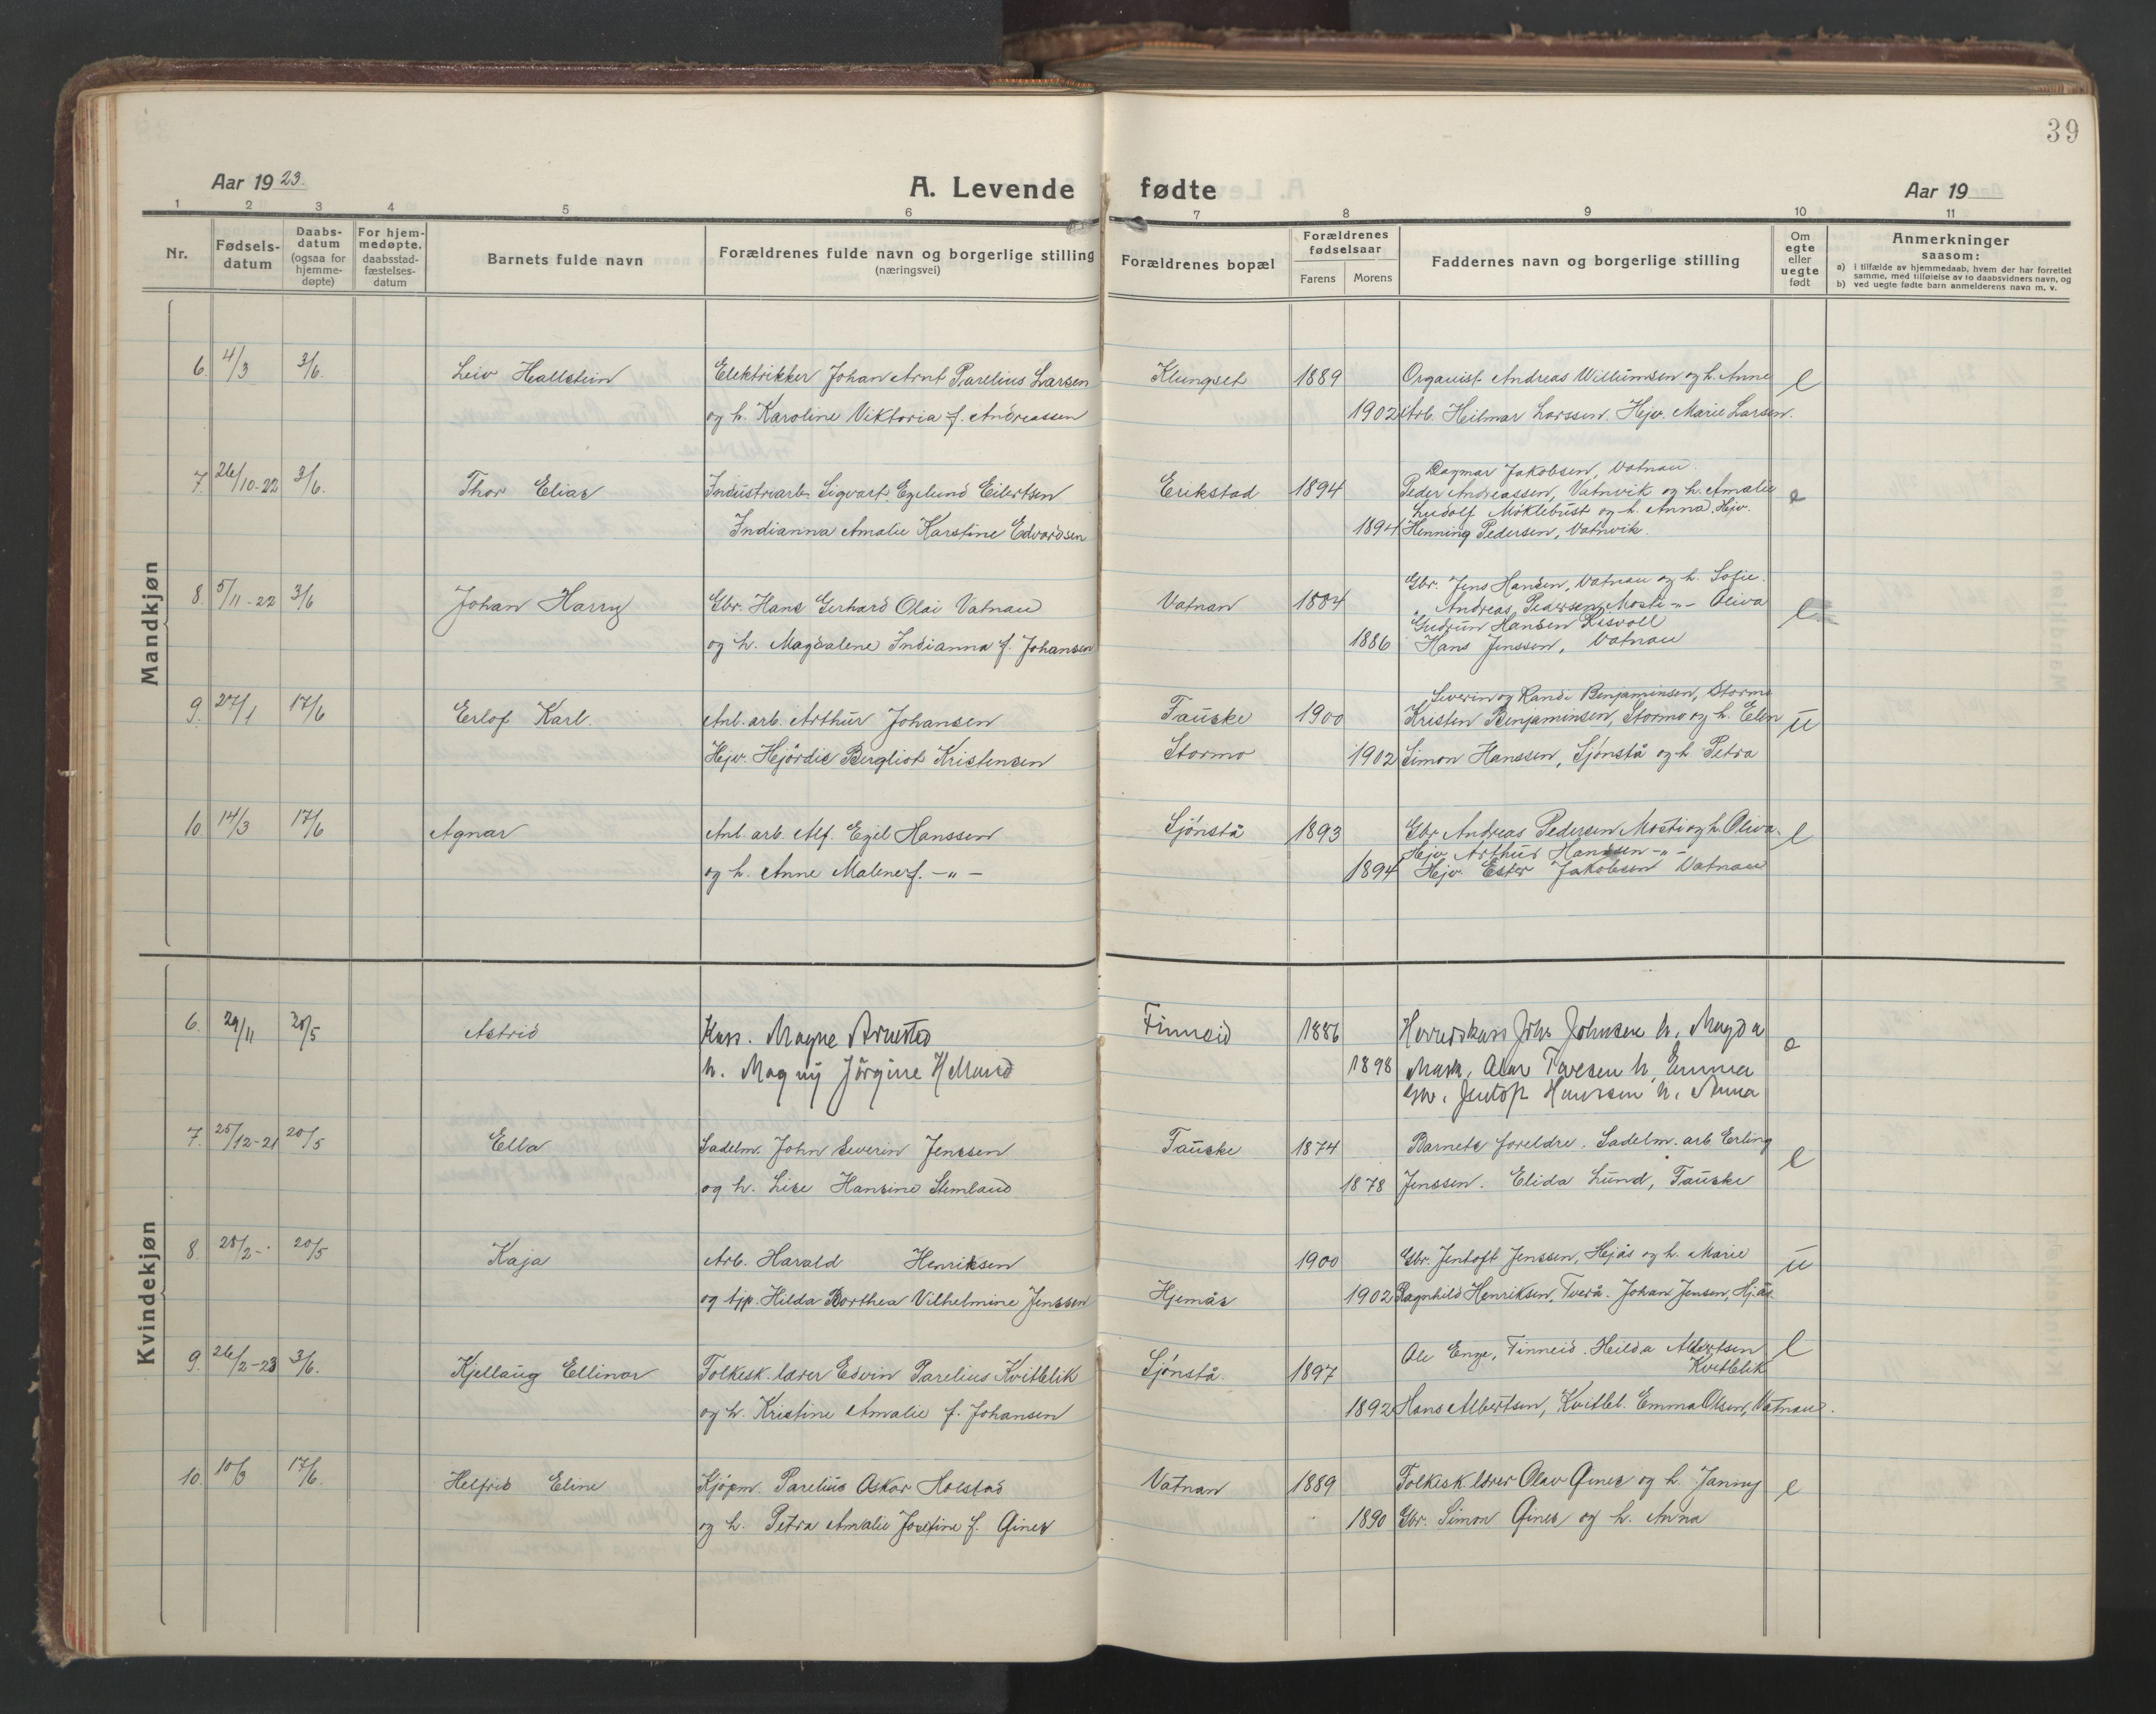 39
Aar 1923.
A. Levende fødte
Aar 19
1 2 3 4 5 6 7 8 9 10 11
Nr.
Fødsels-
datum
Daabs-
datum
(ogsaa for
hjemme-
døpte)
For hjem-
medøpte,
daabsstad-
fæstelses-
datum
Barnets fulde navn
Forældrenes fulde navn og borgerlige stilling
(næringsvei)
Forældrenes bopæl
Forældrenes
fødselsaar
Farens Morens
Faddernes navn og borgerlige stilling
Om
egte
eller
uegte
født
Anmerkninger
saasom:
a) i tilfælde av hjemmedaab, hvem der har forrettet
samme, med tilføielse av to daabsvidners navn, og
b) ved uegte fødte barn anmelderens navn m. v.
Mandkjøn
6. 4/3 3/6. Leiv Hallstein Elektrikker Johan Arnt Parelius Larsen Klungset 1889 Organist Andreas Willumsen og h. Anne e
og h. Karoline Viktoria f. Andreassen 1902 Arb. Heilmar Larssen. Hejv. Marie Larsen.
Dagmar Jakobsen, Vatnan.
7. 26/10-22 3/6. Thor Elias Industriarb. Sigvart Egelund Eibertsen Erikstad 1894 Peder Andreassen, Vatnvik og h. Amalie e
Ludolf Møklebust og h. Anna. Hejv.
Indianna Amalie Karstine Edvardsen 1894 Henning Pedersen, Vatnvik.
Gbr. Jens Hansen, Vatnan og h. Sofie.
8. 5/11-22 3/6 Johan Harry Gbr. Hans Gerhard Olai Vatnan Vatnan 1884 " Andreas Pedersen Mosti -"- Oliva e
Gudrun Hansen Røsvoll
og h. Magdalene Indianna f. Johansen 1886 Hans Jenssen, Vatnan
Severin og Randi Benjaminsen, Stormo
9. 27/1 17/6 Erlof Karl. Anl. arb. Arthur Johansen Fauske 1900 Kristen Benjaminsen, Stormo og h. Elen u
Hejv. Hejørdis Bergliot Kristensen Stormo 1902 Simon Hanssen, Sjønstå og h. Petra
10 14/3 17/6 Agnar Anl. arb. Alf. Egil Hanssen Sjønstå 1893 Gbr Andreas Pedersen Mosti og h. Oliva. e
Hejv. Arthur Hanssen -"-
og h. Anne Malene f. -"- 1894 Hejv. Ester Jakobsen Vatnan
Kvindekjøn
6. 29/11 20/5 Astrid Kass. Magne Arnested Finneid 1886 Herredskass Johs Johnsen h. Magda e
h. Magny Jørgine Helland 1898 Mask, Olav Tovesen h. Emma
Gbr. Jentof Hanssen h. Anna
7. 25/12-21 20/5 Ella Sadelm. John Severin Jenssen Fauske 1874 Barnets foreldre. Sadelm. arb Erling e
og h. Lise Hansine Stemland 1878 Jenssen. Elida Lund, Fauske
8. 28/2-" 20/5 Kaja Arb. Harald Henriksen 1900 Gbr. Jentoft Jenssen, Hejås og h. Marie u
og tjp. Hilda Borthea Vilhelmine Jenssen Hjemås 1902 Ragnhild Henriksen, Tverå. Johan Jensen, Hj.ås
9. 26/2-23 3/6. Kjellaug Ellinor Folkesk. lærer Edvin Parelius Kvitblik Sjønstå. 1897 Ole Enge, Finneid. Heilda Albertsen e
Kvitblik
og h. Kristine Amalie f. Johansen 1892 Hans Albertsen, Kvitbl. Emma Olsen, Vatnan.
10. 10/3 17/6. Helfrid Eline Kjøpm. Parelius Oskar Holstad Vatnan 1889 Folkesk. lærer Olav Gines og h. Janny e
og h. Petra Amalie Josefine f. Gines 1890 Gbr. Simon Gines og h. Anna